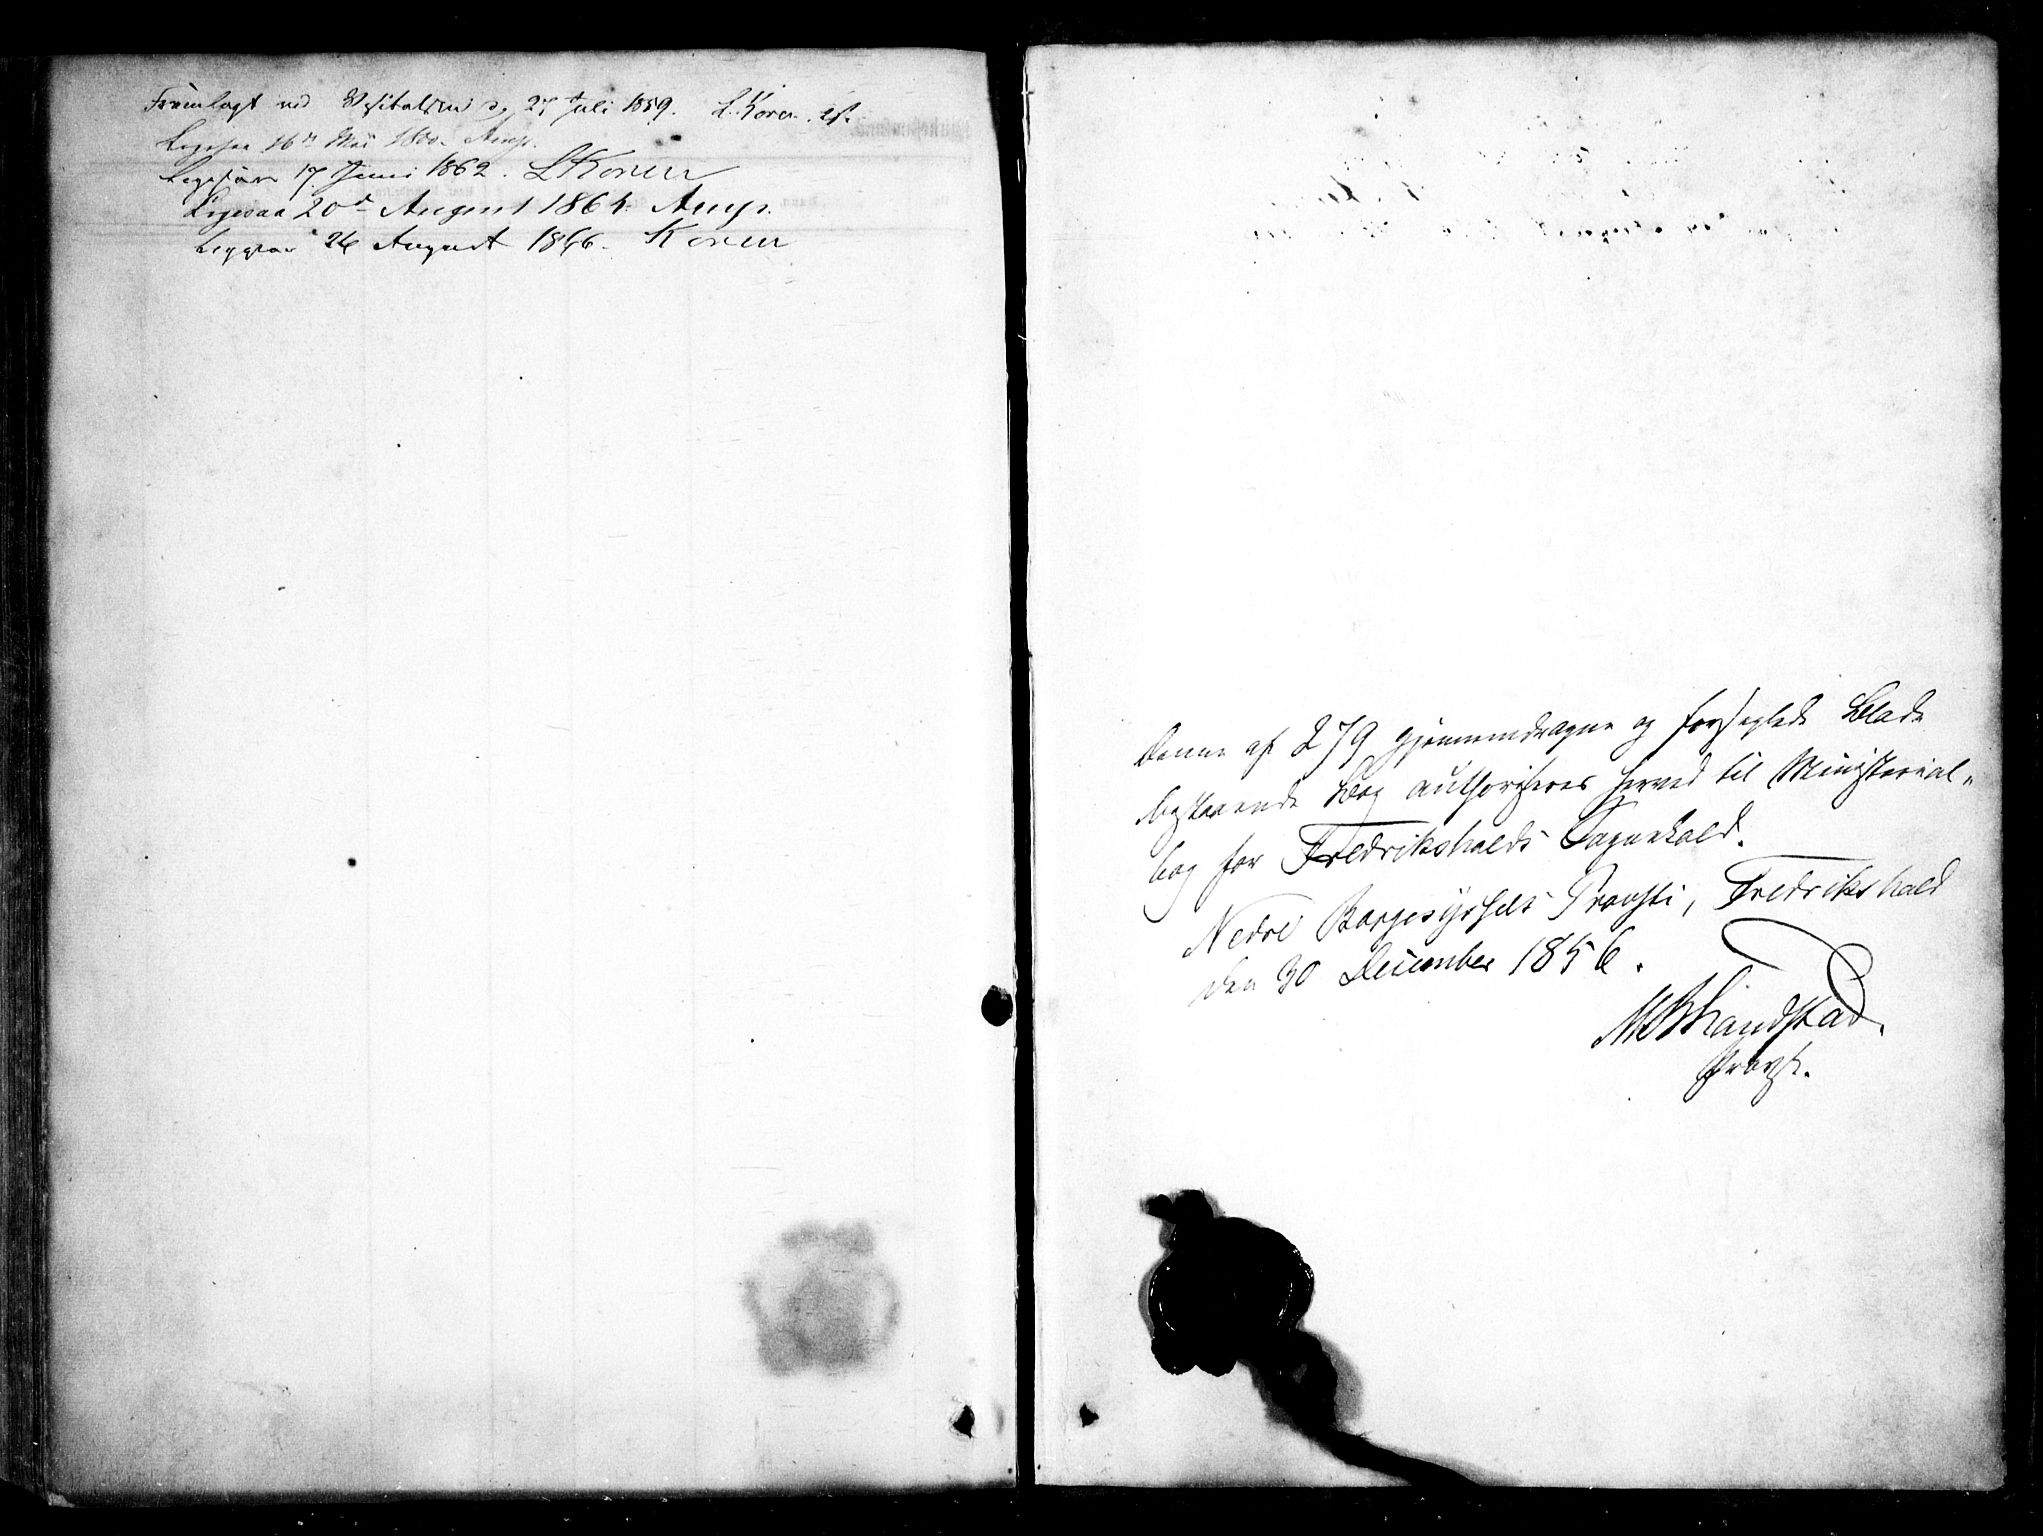 Fremlagt ved Visitatsen d. 27 Juli 1859. L. Koren
Ligesaa 16de Mai 1860.
Ligesaa 17 Juni 1862. LKoren
Ligesaa 20de August 1864.
Ligesaa 26 August 1866. Koren
Denne af 279 gjennemdragne og forseglede Blade
bestaaende Bog authoriseres herved til Ministerial-
bog for Fredrikshalds Sognekald.
Nedre Borgesyssels Provsti, Fredrikshald
den 30 December 1856.
MBLandstad.
Provst.